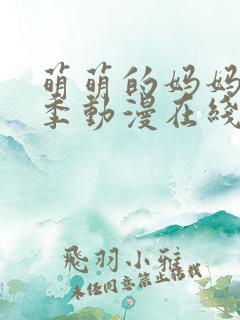 萌萌的妈妈
季动漫在线
飛羽小雅
未经同意禁止转载